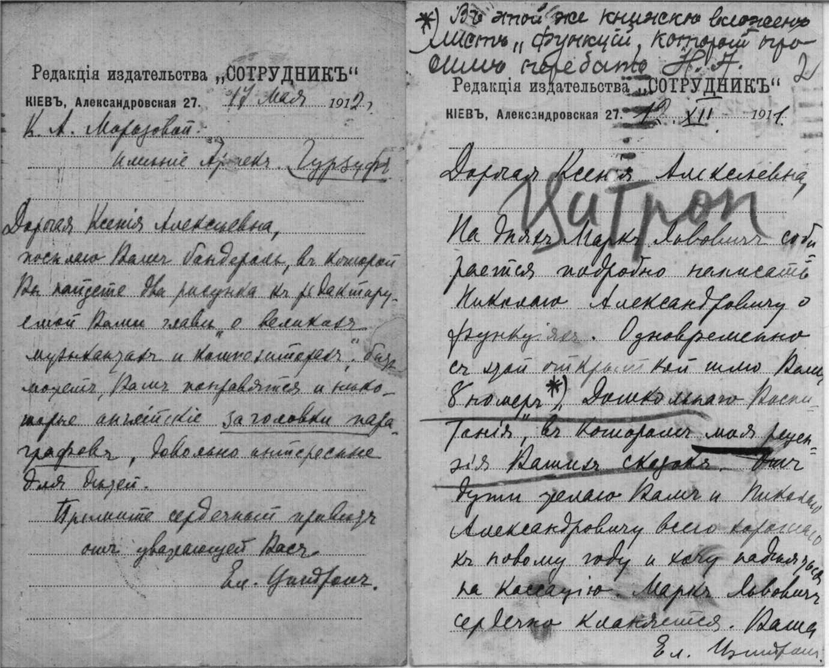 Редакція издательства „СОТРУДНИКЪ“
КІЕВЪ, Александровская 27. 17 мая 1912 г.
К. А. Морозовой.
имѣніе Артекъ. Гурзуфъ
Дорогая Ксенія Алексѣевна,
посылаю Вамъ бандероль, въ которой
Вы найдете два рисунка къ редактиру-
емой Вами главы „о великихъ
музыкантахъ и композиторахъ“, быть
можетъ, Вамъ понравятся и нѣко-
торые англійскіе заголовки пара-
графовъ, довольно интересные
для дѣтей.
Примите сердечный привѣтъ
отъ уважающей Васъ
Ел. Цитронъ.
*) Въ этой же книжкѣ вложенъ
листъ „функцій“, который про-
симъ передать Н. А.
2
Редакція издательства „СОТРУДНИКЪ“
КІЕВЪ, Александровская 27. 12 XII 1911.
Дорогая Ксенія Алексѣевна,
Цитрон
На дняхъ Маркъ Львовичъ соби
рается подробно написать
Николаю Александровичу о
функціяхъ. Одновременно
съ этой открыткой шлю Вамъ
8 номеръ*) „Дошкольнаго Воспи-
танія“, въ которомъ моя рецен-
зія Вашихъ сказокъ. Отъ
души желаю Вамъ и Николаю
Александровичу всего хорошаго
къ новому году и хочу надѣяться
на Кассацію. Маркъ Львовичъ
сердечно кланяется. Ваша
Ел. Цитронъ.